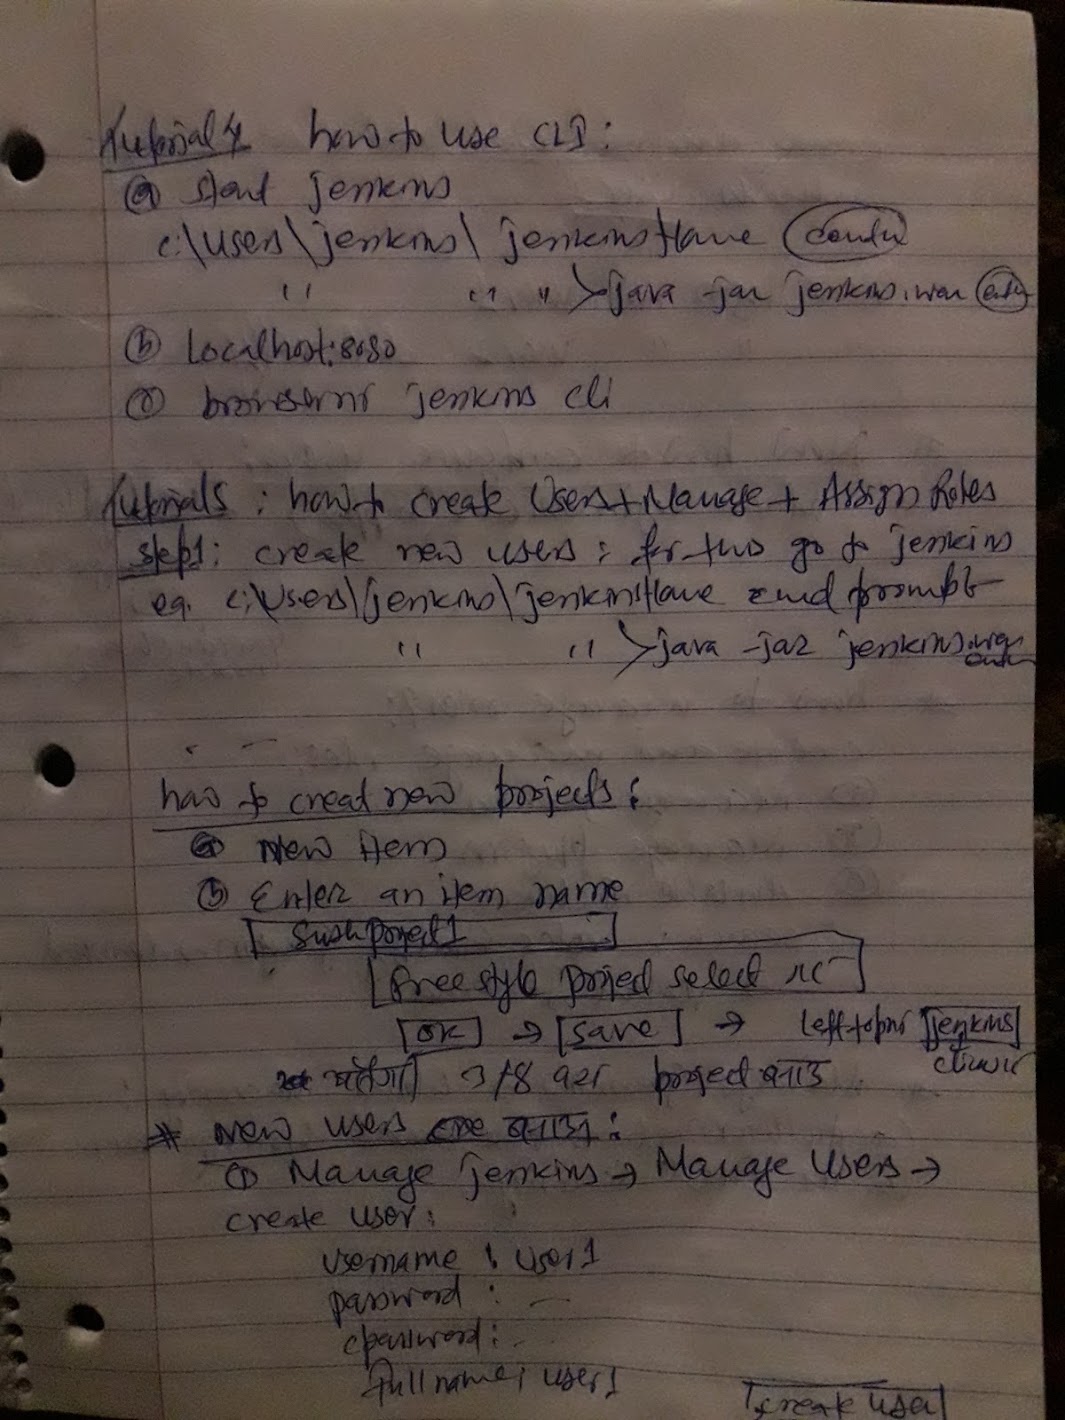 Tutorial 4 how to use CLI:
(a) start jenkins
c:\users\jenkins\jenkinsHome (enter)
" " " >java -jar jenkins.war (enter)
(b) localhost:8080
(c) jenkins cli
Tutorial 5: how to create Users+Manage+ Assign Roles
step1: create new users: for this go to jenkins
eg. c:\Users\jenkins\jenkinsHome cmd prompt
" " >java -jar jenkins.war
enter
how to creat new projects:
(a) New Item
(b) Enter an item name
SushProject1
free style project select
OK → save → jenkins
project बनाउ
* New users बनाउन:
(1) Manage jenkins → Manage Users →
create user:
username: user1
password: —
cpassword:
full name: user1
create user